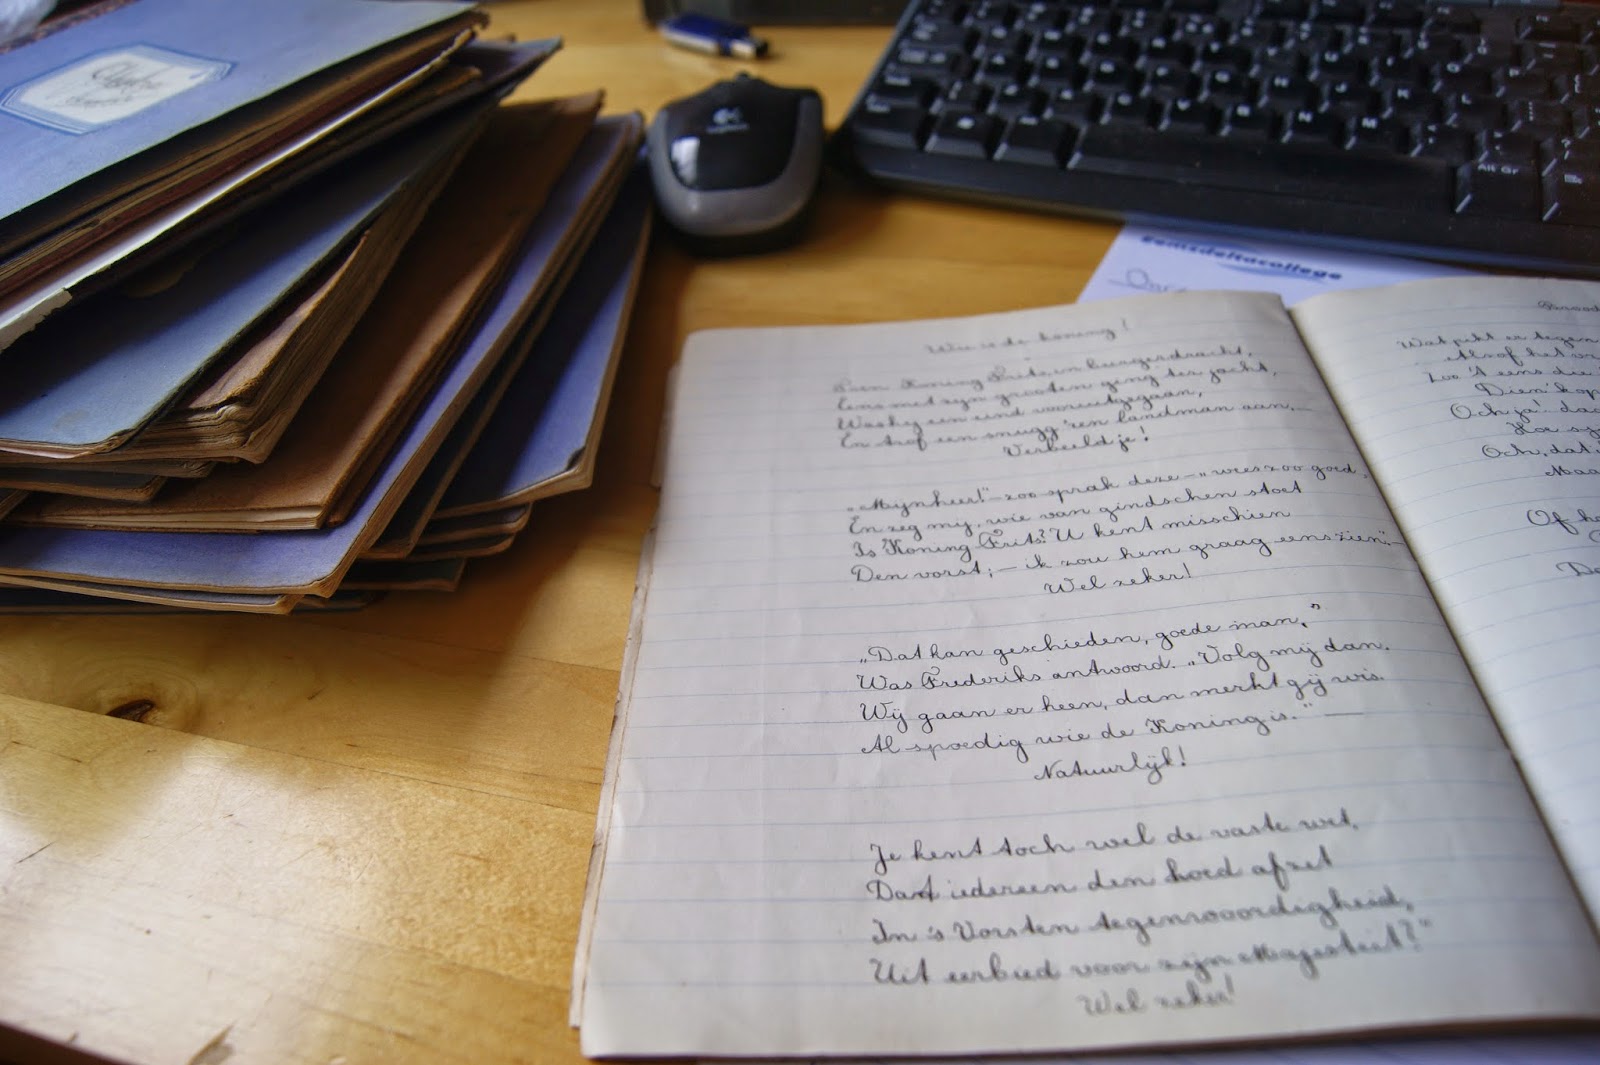 Wie is de koning!
Toen Koning Frits, in burgerdracht,
Eens met zijn grooten ging ter jacht,
Was hij een eind vooruitgegaan,
En trof een snugg'ren landman aan. —
Verbeeld je!
„Mijnheer!" — zoo sprak deze — „wees zoo goed,
En zeg mij, wie van gindschen stoet
Is Koning Frits? U kent misschien
Den vorst; — ik zou hem graag eens zien." —
Wel zeker!
„Dat kan geschieden, goede man,"
Was Frederiks antwoord. „Volg mij dan.
Wij gaan er heen, dan merkt gij wis.
Al spoedig wie de Koning is." —
Natuurlijk!
Je kent toch wel de vaste wet,
Dat iedereen den hoed afzet
In 's Vorsten tegenwoordigheid,
Uit eerbied voor zijn Majesteit?"
Wel zeker!
Wat pikt er tegen
Alsof het
Zoo 't eens die
Dien kop
Och ja! da
Hoe
Och, dat
Maa
Of h
Eemsdeltacollege
Alt Gr